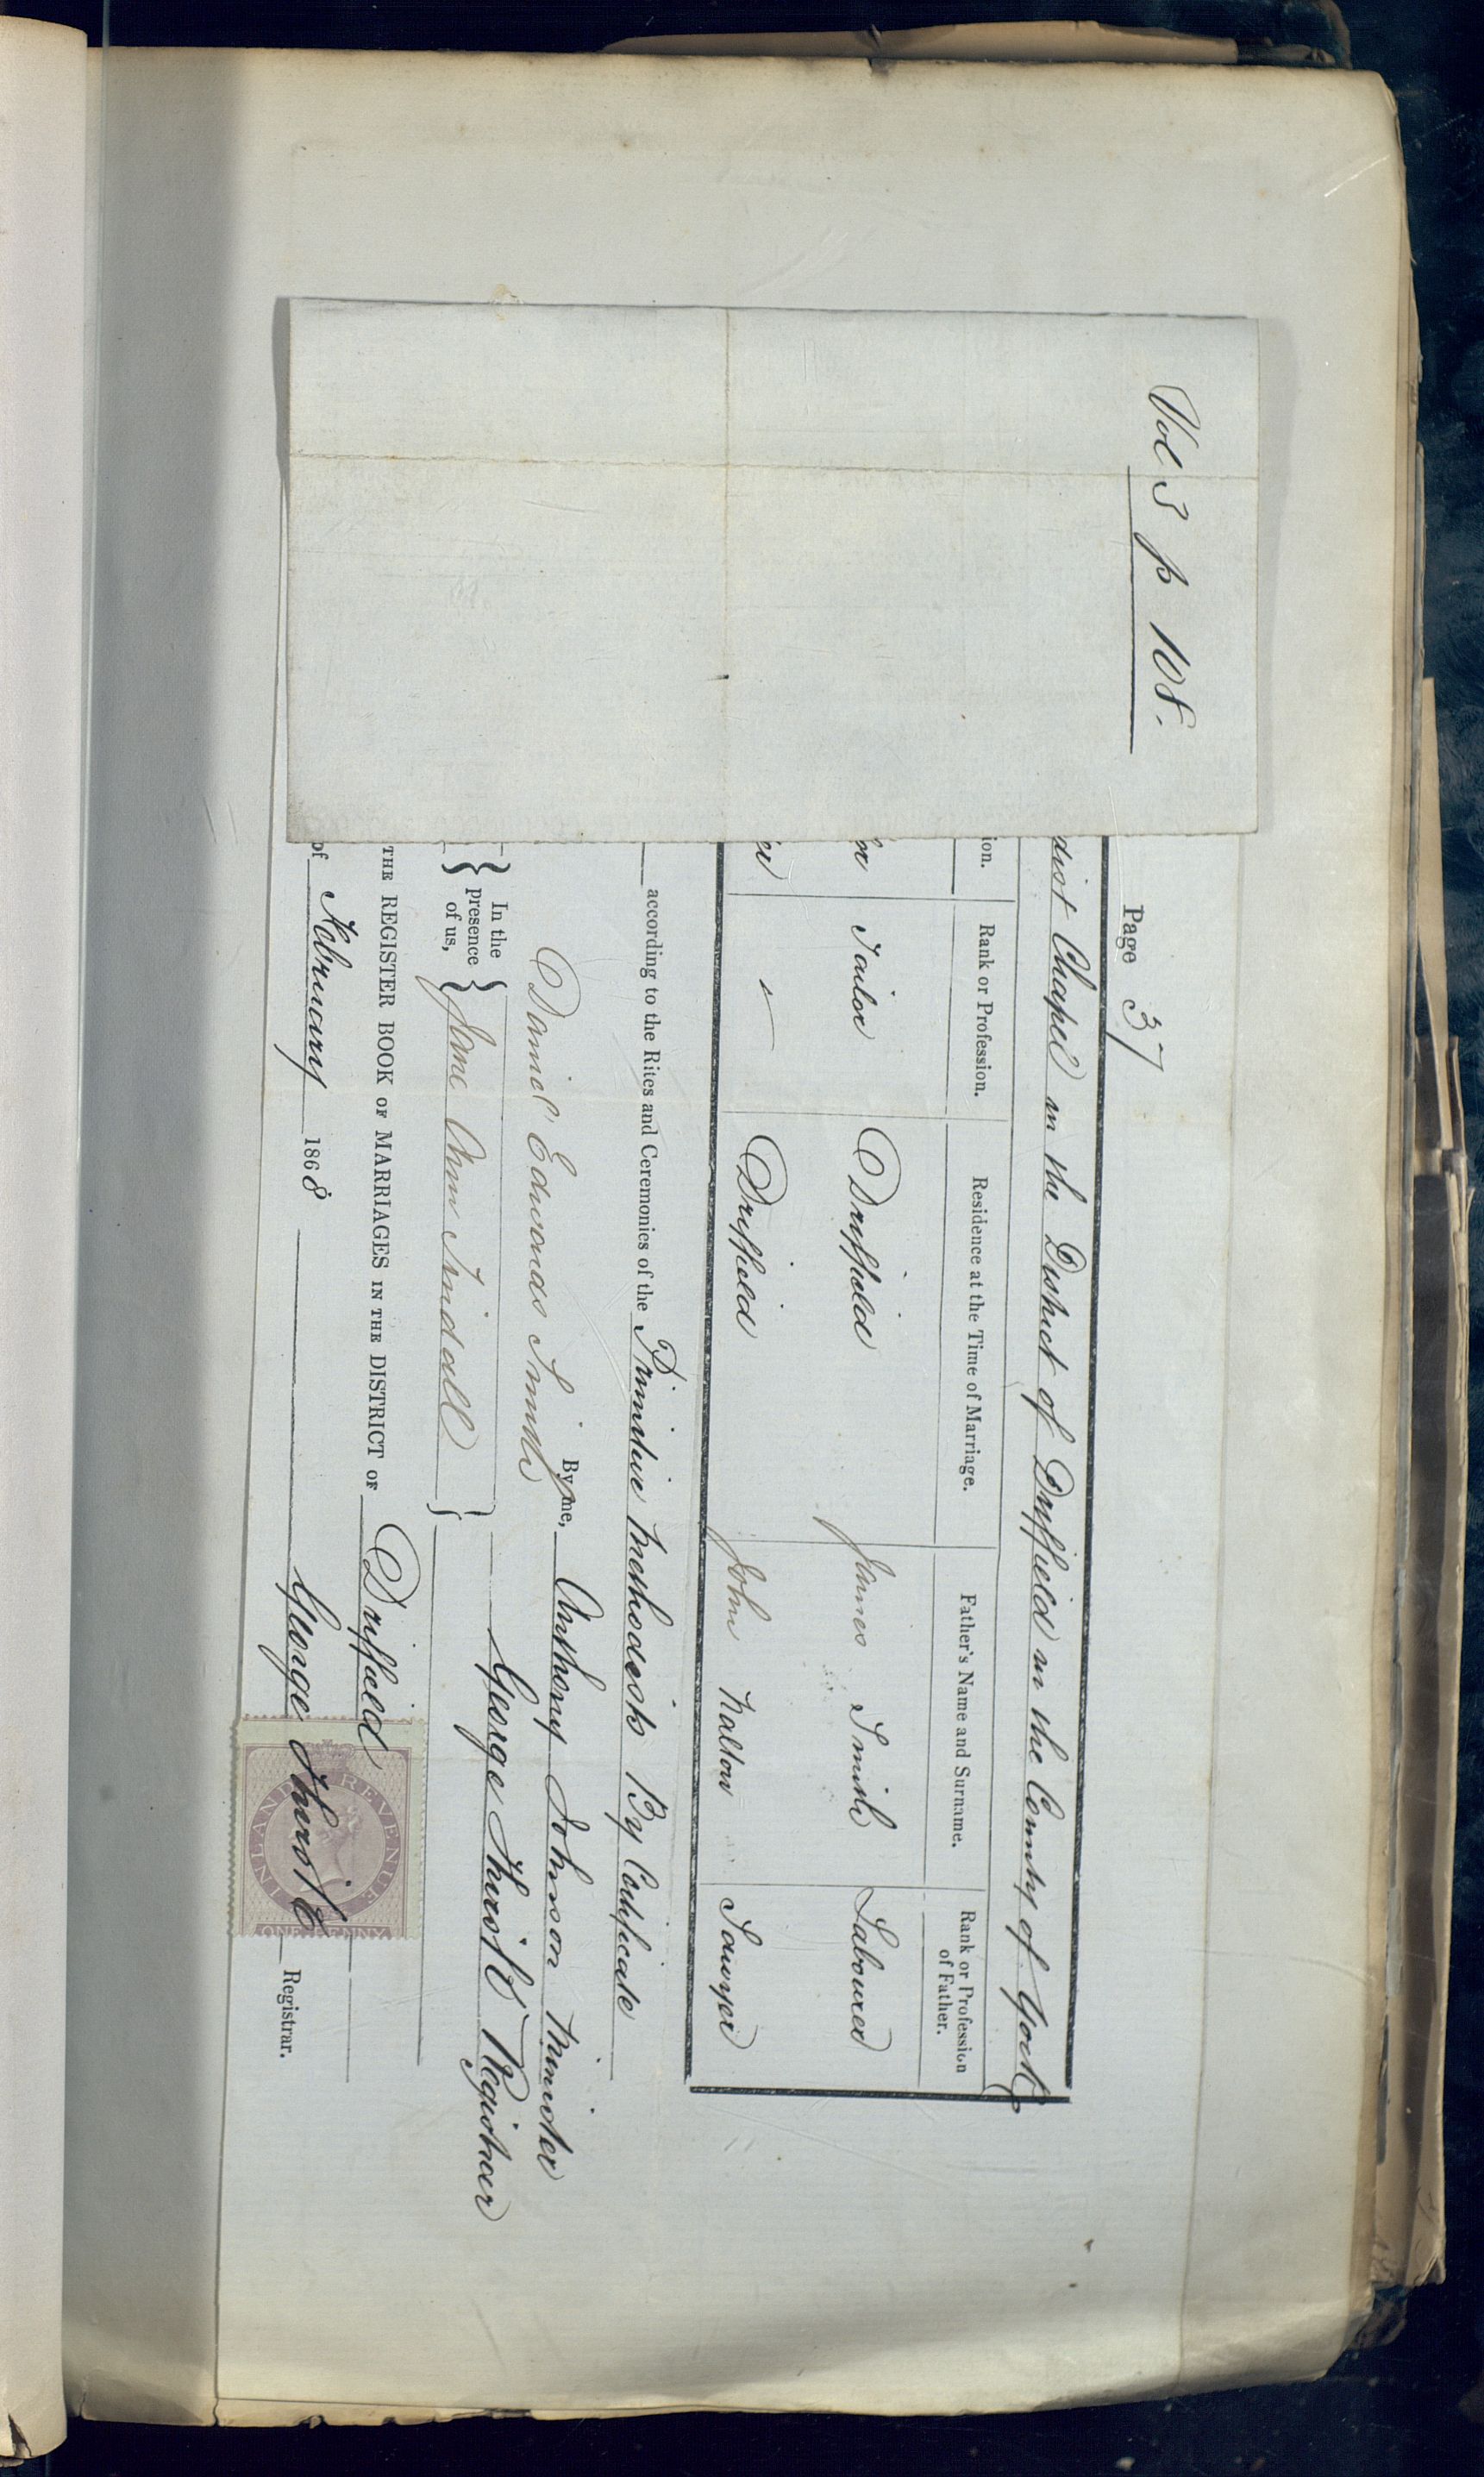 Vol 3 p 108.
Page 37
dist Chapel in the District of Driffield in the County of York
ion.
Rank or Profession.
Residence at the Time of Marriage.
Father's Name and Surname.
Rank or Profession of Father.
or Tailor Driffield James Smith Labourer
er Driffield John Nalton Sawyer
according to the Rites and Ceremonies of the Primitive Methodists By Certificate
Daniel Edwards Smith By me, Anthony Johnson Minister
In the presence of us,
Jane Ann Tindall George Thirsk Registrar
THE REGISTER BOOK OF MARRIAGES IN THE DISTRICT OF Driffield
of February 1868 George Thirsk Registrar.
INLAND REVENUE
ONE PENNY